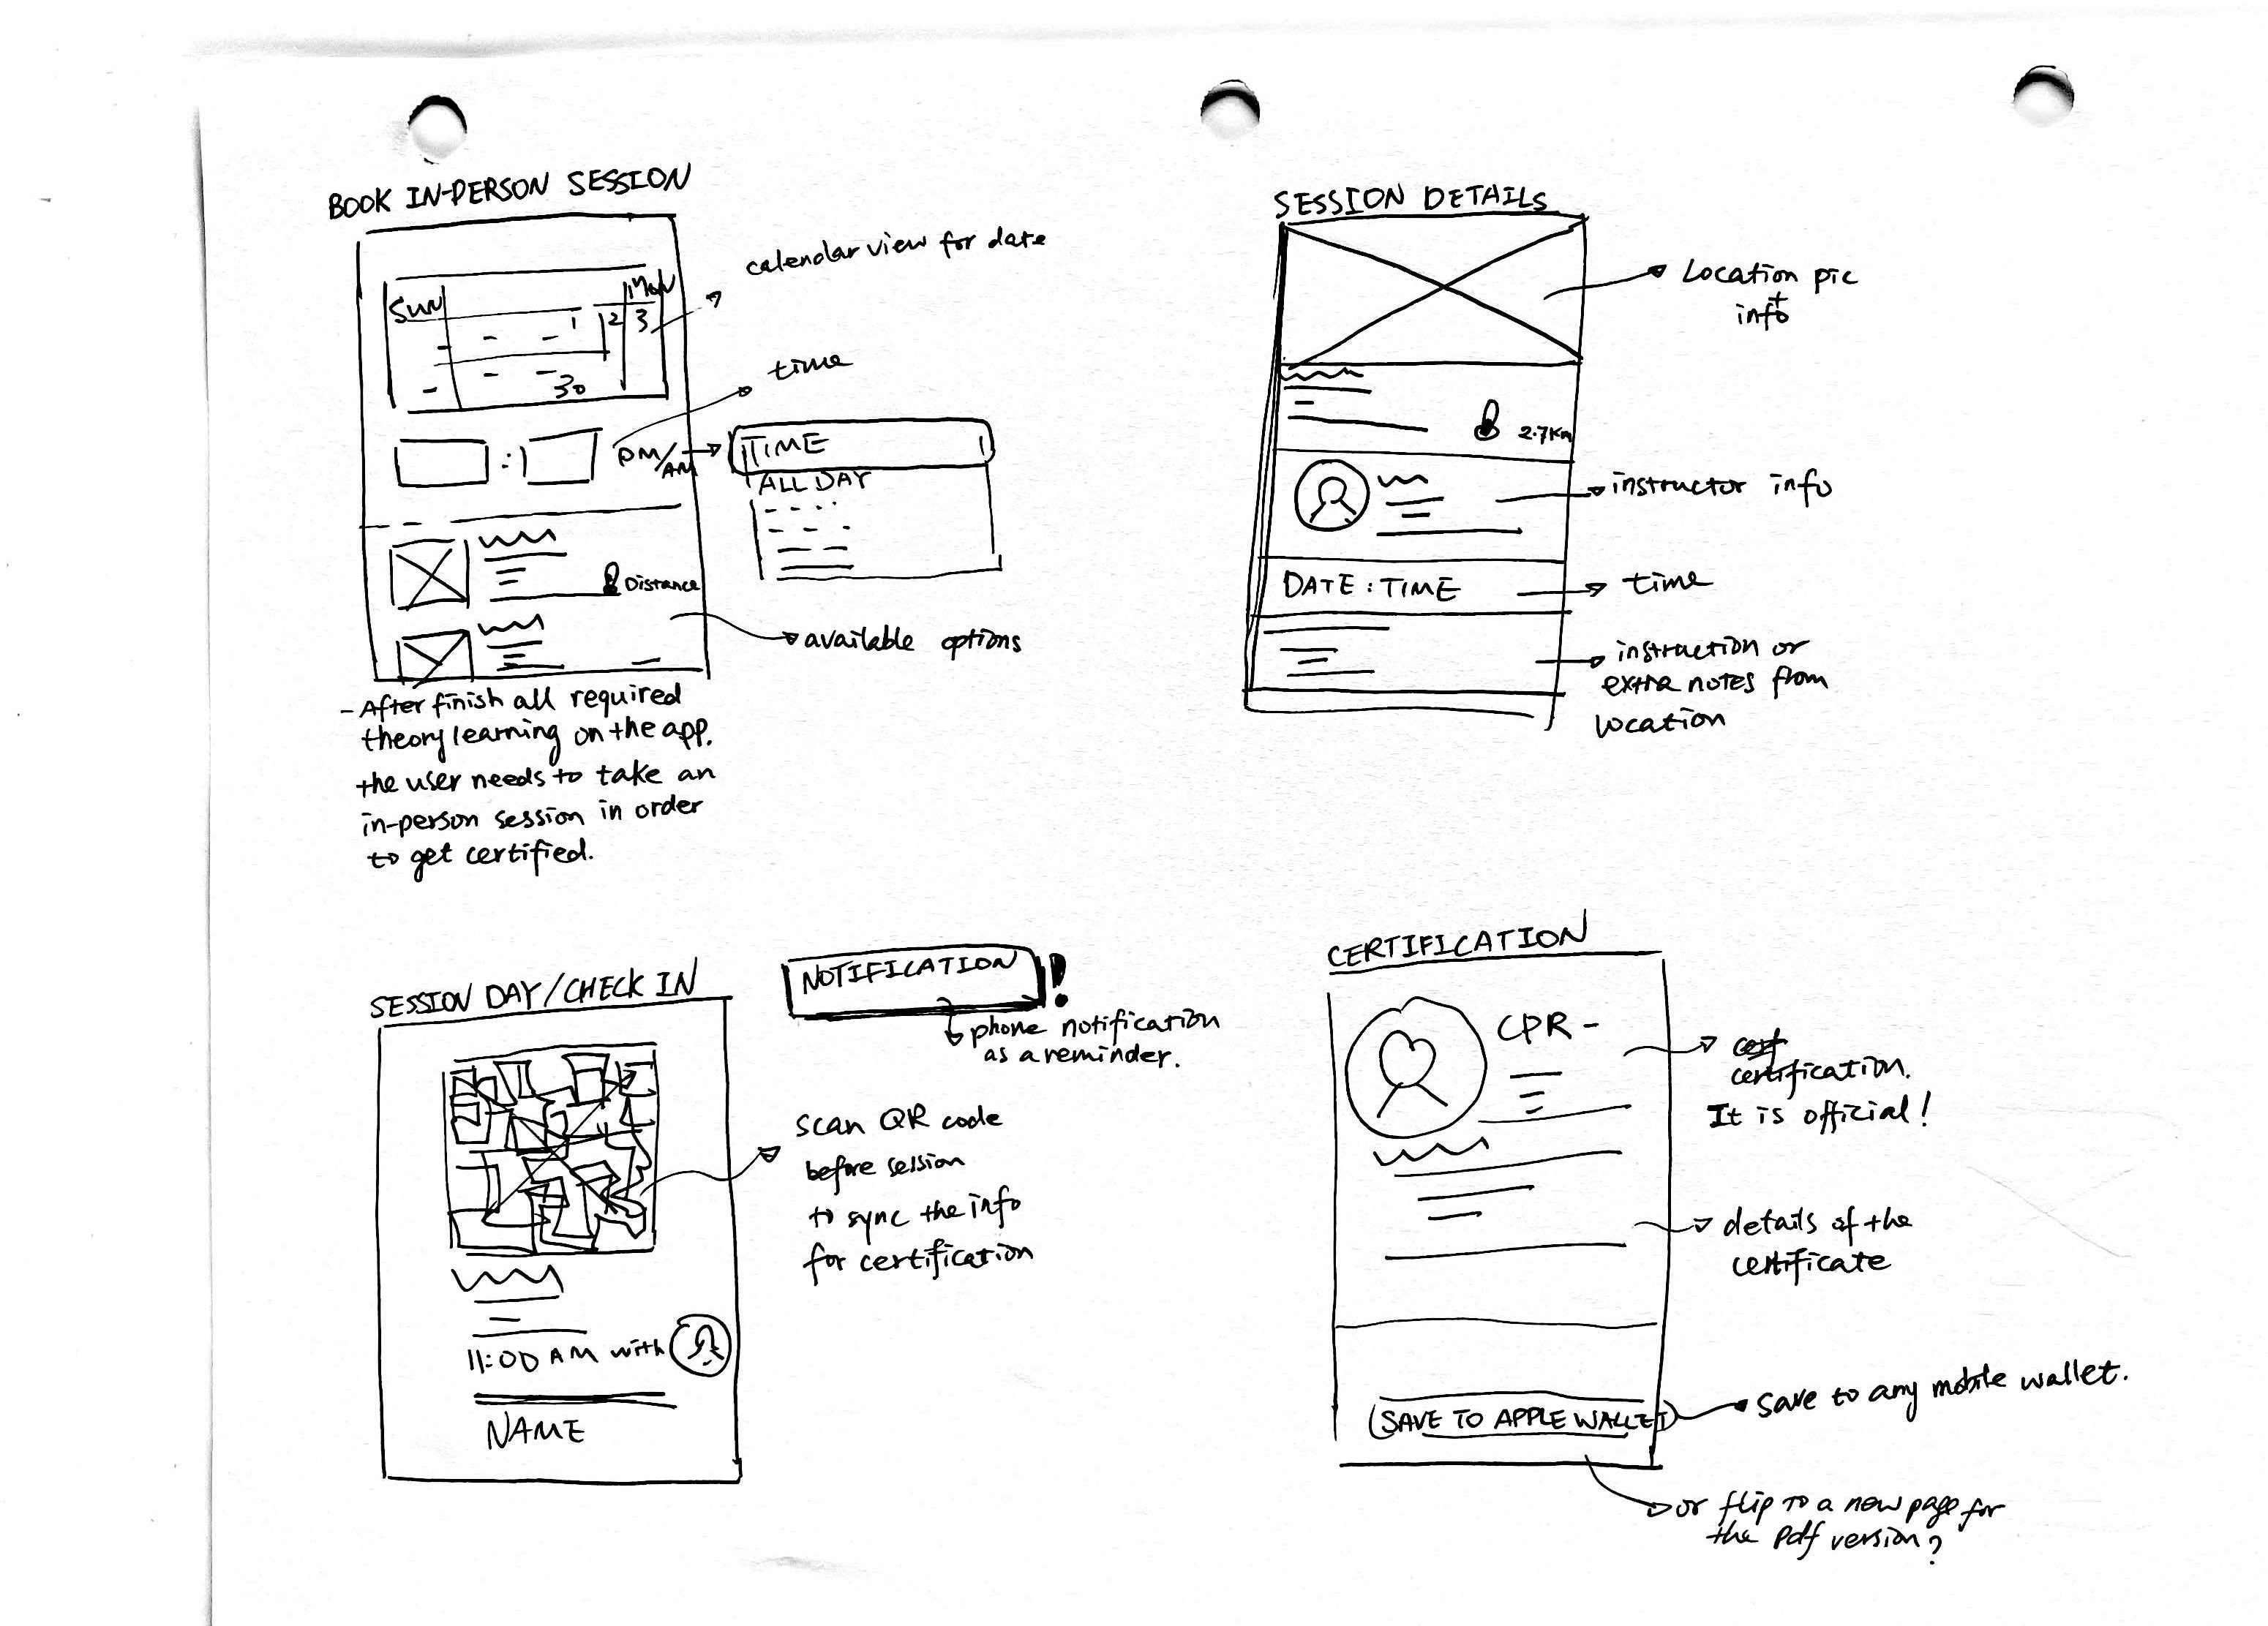 BOOK IN-PERSON SESSION
calendar view for date
SUN
MON
1 2 3
30
time
: PM/AM
TIME
ALL DAY
Distance
available options
- After finish all required
theory learning on the app.
the user needs to take an
in-person session in order
to get certified.
SESSION DETAILS
Location pic
+
info
2.7km
instructor info
DATE : TIME
time
instruction or
extra notes from
location
SESSION DAY/CHECK IN
NOTIFICATION !
phone notification
as a reminder.
scan QR code
before session
to sync the info
for certification
11:00 AM with
NAME
CERTIFICATION
CPR -
cert
certification.
It is official!
details of the
certificate
SAVE TO APPLE WALLET
save to any mobile wallet.
or flip to a new page for
the pdf version?